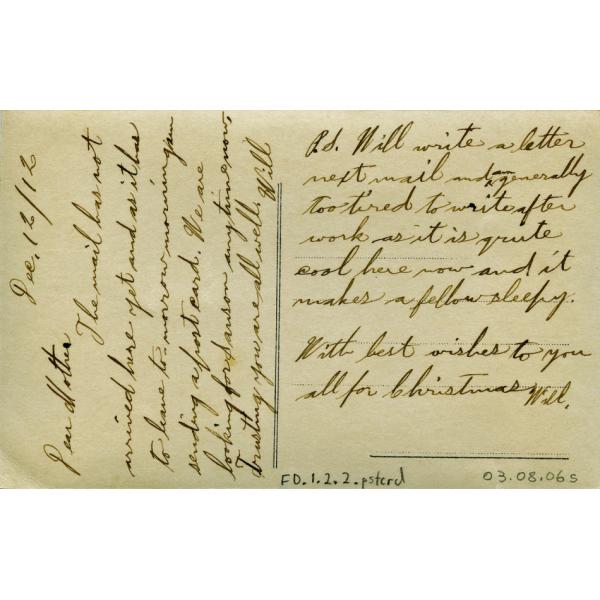 Dec. 12/12
Dear Mother
The mail has not
arrived here yet and as it has
to leave to-morrow morning am
sending a post card. We are
looking for Sanson any time now,
trusting you are all well. Will
P.S. Will write a letter
next mail and am generally
too tired to write after
work as it is quite
cool here now and it
makes a fellow sleepy.
With best wishes to you
all for Christmas
Will.
FD.1.2.2.pstcrd
03.08.06s